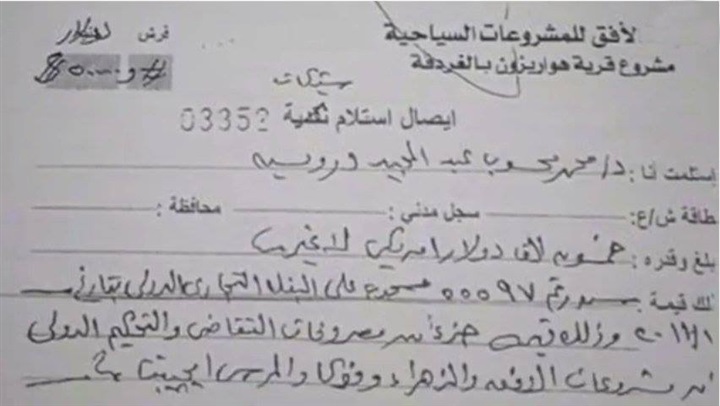 لأفق للمشروعات السياحية
مشروع قرية هورايزون بالغردقة
قرش دولار
شيكات
ايصال استلام نكفية 03352
إستلمت أنا : د/ محمد محسوب عبد المجيد درويش
طاقة ش/ع : سجل مدني : محافظة :
بلغ وقدره : خمسون ألف دولار أمريكي لا غير
لك قيمة شيك رقم 00097 مسحوب على البنك التجارى الدولى بتاريخ
وذلك قيمة جزء من مصروفات التقاضى والتحكيم الدولى
مشروعات الافق والزهراء